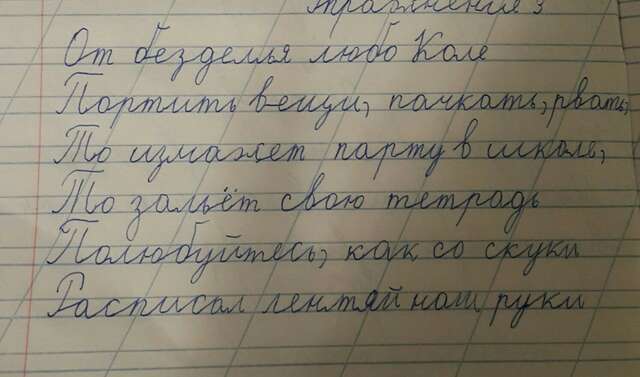 Упражнение 3
От безделья любо Коле
Портить вещи, пачкать, рвать,
То измажет парту в школе,
То зальёт свою тетрадь
Полюбуйтесь, как со скуки
Расписал лентяй наш руки